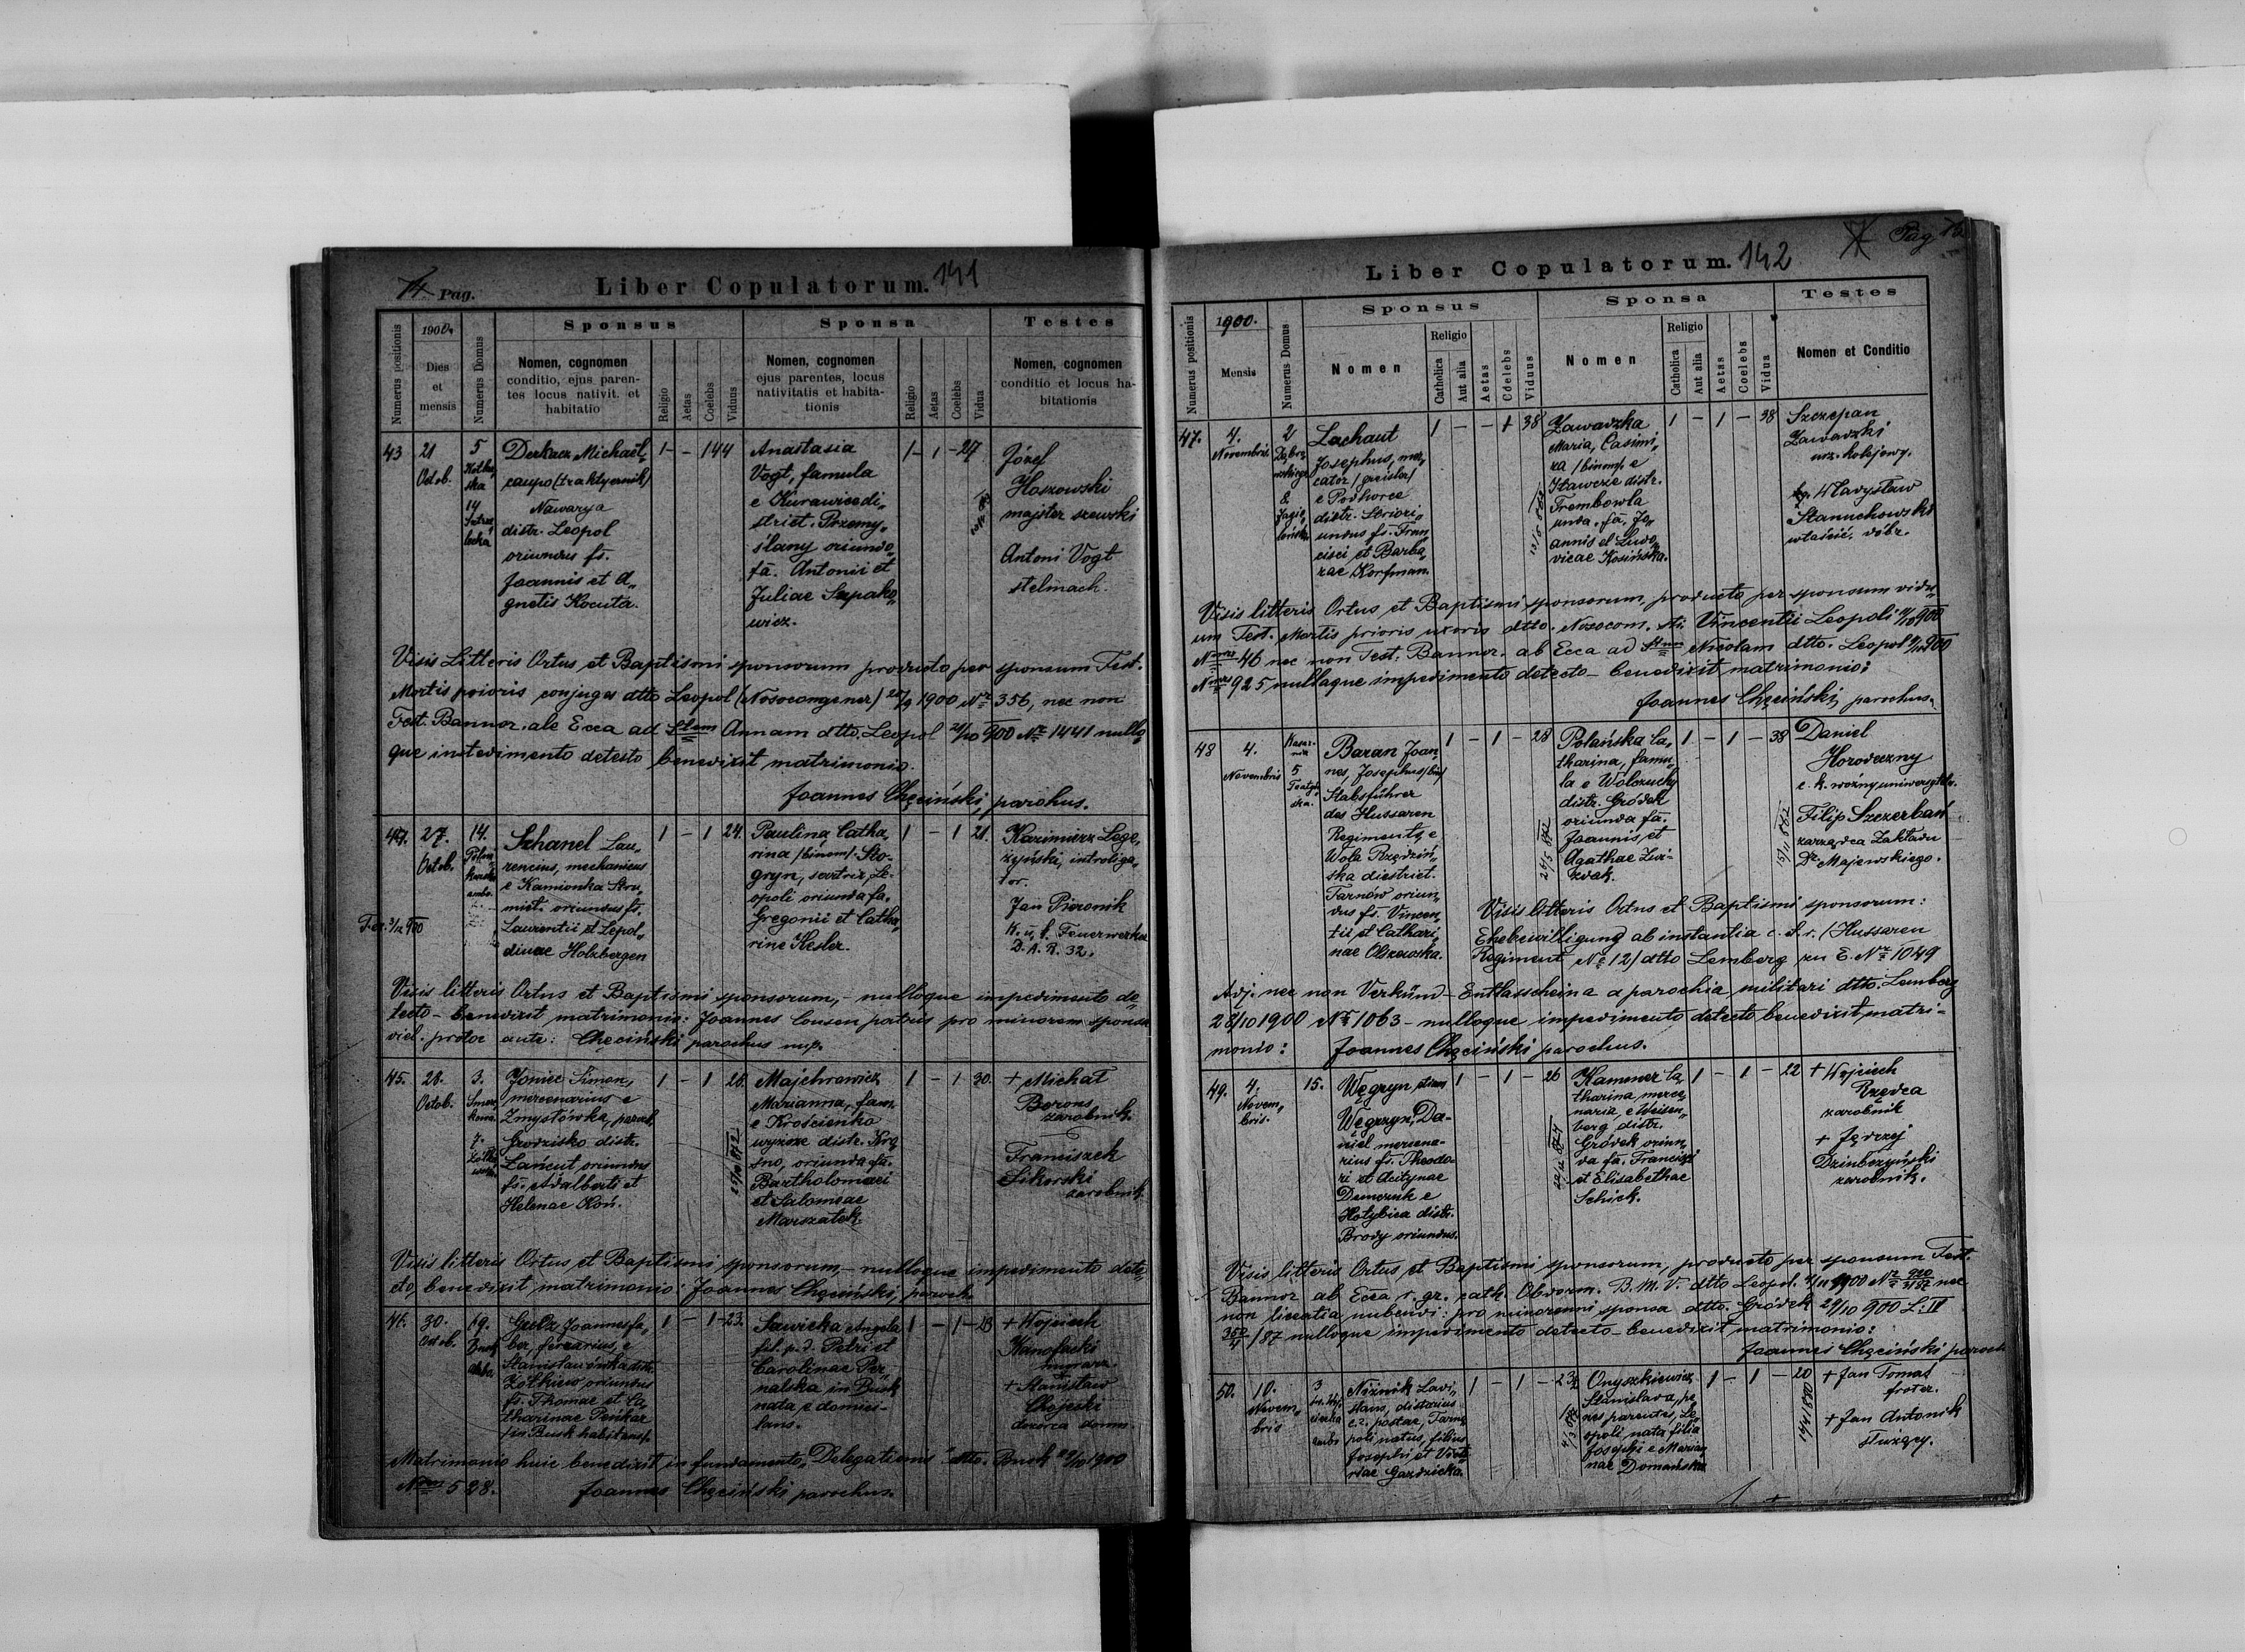 14 Pag.
Liber Copulatorum. 141
Numerus positionis
1900.
Dies
et
mensis
Numerus Domus
Sponsus
Nomen, cognomen
conditio, ejus paren-
tes locus nativit. et
habitatio
Religio
Aetas
Coelebs
Viduus
Sponsa
Nomen, cognomen
ejus parentes, locus
nativitatis et habita-
tionis
Religio
Aetas
Coelebs
Vidua
Testes
Nomen, cognomen
conditio et locus ha-
bitationis
43
21
Octob.
5
14
Derkacz Michael,
caupo (traktyernik)
Nawarya
distr. Leopol
oriundus fs.
Joannis et A„
gnetis Kocuta.
1 - - 1 44
Anastasia
Vogt, famula
e Kurawice di„
strict. Przemy„
ślany oriunda
fa. Antonii et
Juliae
wicz.
1 - 1 - 27
Józef
Hoszowski
majster szewski
Antoni Vogt
stelmach.
Visis Litteris Ortus et Baptismi sponsorum producto per sponsum Test.
Mortis prioris conjuges dtto Leopol 1900 Nr 356, nec non
Test. Bannor. ab Ecca ad Stam Annam dtto. Leopol 900 Nr 1441 nullo„
que impedimento detecto benedixit matrimonio.
Joannes Chęciński, parochus.
44.
27.
Octob.
14.
Schanel Lau„
rencius, mechanicus
e Kamionka Stru„
mił. oriundus fs.
Laurentii et Lepol„
dinae Holzbergen
1 - 1 24.
Paulina Catha„
rina /binom/. Sto-
gryn, sartrix, Le-
opoli oriunda fa.
Gregorii et Catha„
rine Kesler.
1 - 1 21.
Kazimierz
introliga„
tor.
Jan Pieronik
k. u. k. Feuerwerker
D. A. R. 32.
Visis litteris Ortus et Baptismi sponsorum, - nulloque impedimento de„
tecto - benedixit matrimonio: Joannes Consen patris pro minorem sponsa
vid. protoc ante: Chęciński parochus mp.
45.
28.
Octob.
3.
7.
Joniec Simon,
mercenarius e
Zmysłówka, paroch.
Grodzisko distr.
Łańcut, oriundus
fs. Adalberti et
Helenae Koń.
1 - 1 28.
Majchrowicz
Marianna, fam.
e Krościenko
wyższe distr. Kro„
sno, oriunda fa.
Bartholomaei
et Salomeae
Marszałek.
1 - 1 30.
+ Michał
zarobnik.
Franciszek
Sikorski
zarobnik.
Visis litteris Ortus et Baptismi sponsorum, - nulloque impedimento dete„
cto, benedixit matrimonio: Joannes Chęciński, paroch.
46.
30.
Octob.
19.
Joannes fa„
ber, ferrarius, e
distr.
Żółkiew oriundus
fs. Thomae et Ca„
tharinae
/in Busk habitans/.
1 - 1 - 23.
Sawicka Angela
fil. p. d. Petri et
Carolinae
in Busk
nata e domici-
lians.
1 - 1 - 18
+ Wojciech
murarz.
+ Stanisław
dozorca domu.
Matrimonio huic benedixit in fundamento „Delegationis" dtto. Busk 29/10 1900
Nro 528. Joannes Chęciński parochus.
Pag
Liber Copulatorum. 142
Numerus positionis
1900.
Mensis
Numerus Domus
Sponsus
Nomen
Religio
Catholica
Aut alia
Aetas
Coelebs
Viduus
Sponsa
Nomen
Religio
Catholica
Aut alia
Aetas
Coelebs
Vidua
Testes
Nomen et Conditio
47.
4.
Novembris
2
Lachaut
Josephus, mer„
cator
e Podhorce
distr. Stri ori„
undus fs. Fran„
cisci et Barba„
rae Korfman.
1 - - 1 38
Zawadzka
Maria, Casimi„
ra /binom/. e
Iławcze distr.
Trembowla
unda. fa. Jo„
annis et Ludo„
vicae Kosińska.
1 - 1 - 38
Szczepan
Zawadzki
urz. kolejowy.
Władysław
Stanuchowski
właścić. dóbr.
Visis litteris Ortus et Baptismi sponsorum, producto per sponsum vidu„
um Test. Mortis prioris uxoris dtto. Nosocom. Sti Vincentii Leopoli 900
Nro 46 nec non Test. Bannor. ab Ecca ad Stum Nicolam dtto. Leopol 900
Nro 925 nulloque impedimento detecto - benedixit matrimonio:
Joannes Chęciński, parochus.
48
4.
Novembris
5
Baran Joan„
nes, Josephus /bin/
Stabsführer
des Hussaren
Regiments, e
Wola Rzędziń„
ska district.
Tarnów oriun„
dus fs. Vincen„
tii et Cathari„
nae Olszewska.
1 - 1 - 28
Polańska Ca„
tharina, famu„
la e Wołczuchy
distr. Gródek
oriunda fa.
Joannis et
Agathae
1 - 1 - 38
Daniel
Horodeczny
c. k. woźny uniwersytetu.
Filip Szczerbań
zarządca Zakładu
Dr Majewskiego.
Visis litteris Ortus et Baptismi sponsorum:
Ehebewilligung ab instantia /Hussaren
Regiment Nr 12/ dtto Lemberg zu E. Nr 1049
Adj. nec non Verkünd-Entlasscheina a parochia militari dtto. Lemberg
28/10 1900 Nr 1063 - nulloque impedimento detecto benedixit matri-
monio: Joannes Chęciński parochus.
49.
4.
Novem„
bris.
15.
Węgryn
Węgrzyn, Da-
niel mercena-
rius fs. Theodo-
ri et
Demczuk e
Hołybica distr.
Brody oriundus.
1 - 1 - 26
Kammer Ca„
tharina, merce„
naria, e Weisen„
berg distr.
Gródek oriun„
da fa. Francisci
et Elisabethae
Schick.
1 - 1 - 22
+ Wojciech
Rzędca
zarobnik
+ Jędrzej
zarobnik.
Visis litteris Ortus et Baptismi sponsorum, producto per sponsum Test.
Bannor ab Ecca r. gr. cath. B. M. V. dtto Leopol. 1900 Nr nec
non licentia nubendi: pro minorenni sponsa dtto. Gródek 29/10 900 L: IV
/87 nulloque impedimento detecto - benedixit matrimonio:
Joannes Chęciński paroch
50.
10.
Novem„
bris
3
Niżnik Ladi„
slaus,
c. r. postae, Tarno„
poli natus, filius
Josephi et Victo„
riae Gazdzicka.
1 - 1 - 23
Onyszkiewicz
Stanislava, pe„
nes parentes, Le„
opoli nata filia
Josephi e Maria„
nae Domańska
1 - 1 - 20
+ Jan Tomas
froter.
+ Jan Antonik
służący.